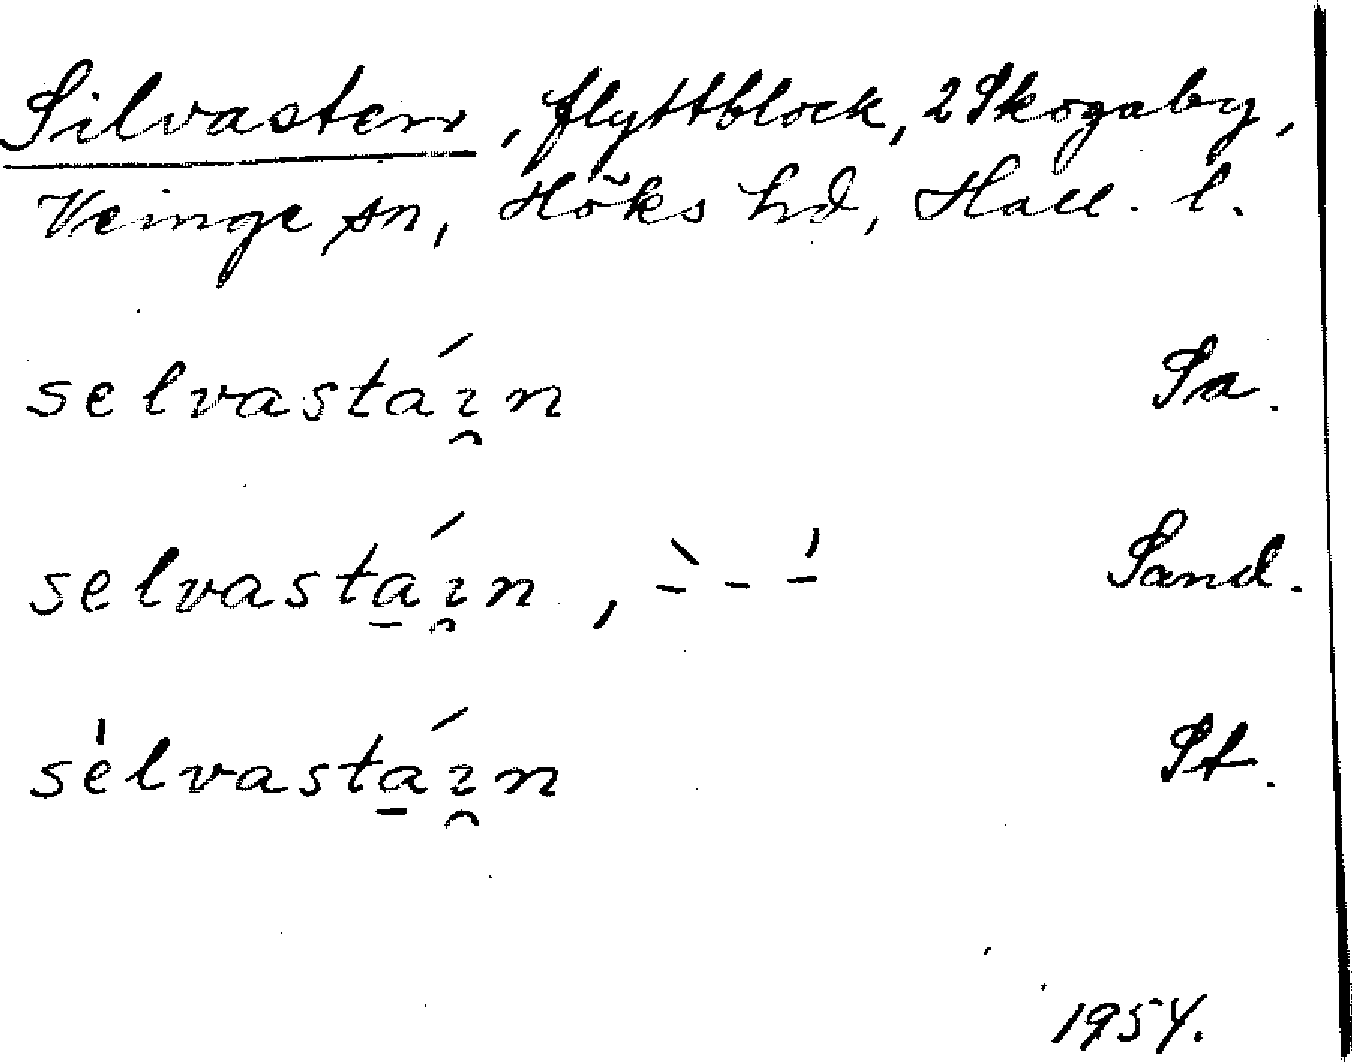 Silvasten, flyttblock, 2 Skogaby,
Veinge sn, Höks hd, Hall. l.
selvastáı̯n Sa.
selvasta̱ı̯́n, `- - ˈ- Sand.
se̍lvasta̱ı̯́n St.
1954.